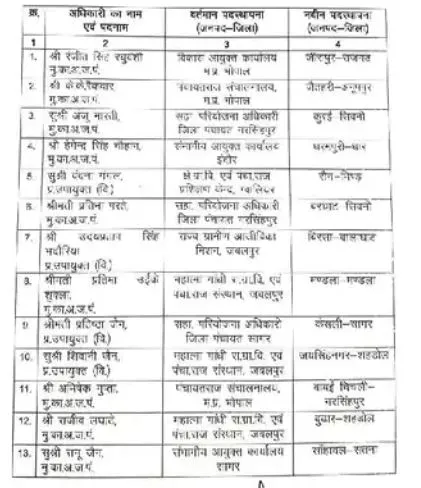 क्र. अधिकारी का नाम एवं पदनाम वर्तमान पदस्थापना (जनपद-जिला) नवीन पदस्थापना (जनपद-जिला)
1 2 3 4
1. श्री रंजीत सिंह रघुवंशी विकास आयुक्त कार्यालय जीरापुर-राजगढ
मु.का.अ.ज.पं. म.प्र. भोपाल
2. श्री के.के. पंचायतराज संचालनालय, जैतहरी-अनूपपुर
मु.का.अ.ज.पं. म.प्र. भोपाल
3. सुश्री अंजू सहा. परियोजना अधिकारी कुरई सिवनी
मु.का.अ.ज.पं. जिला पंचायत नरसिंहपुर
4. श्री सिंह चौहान, संभागीय आयुक्त कार्यालय धरमपुरी-धार
मु.का.अ.ज.पं. इंदौर
5 सुश्री क्षे.ग्रा.वि. एवं पंचा.राज रौन-भिण्ड
प्र.उपायुक्त (वि.) प्रशिक्षण केन्द्र, ग्वालियर
6. श्रीमती प्रतिभा परते, सहा. परियोजना अधिकारी बरघाट सिवनी
मु.का.अ.ज.पं. जिला पंचायत नरसिंहपुर
7. श्री उदयप्रताप सिंह राज्य ग्रामीण आजीविका बिरसा-बालाघाट
भदौरिया मिशन, जबलपुर
प्र.उपायुक्त (वि.)
8. श्रीमती प्रतिमा उईके महात्मा गांधी रा.ग्रा.वि. एवं मण्डला-मण्डला
शुक्ला, पंचा.राज संस्थान, जबलपुर
मु.का.अ.ज.पं.
9 श्रीमती प्रतिष्ठा जैन, सहा. परियोजना अधिकारी केसली-सागर
प्र.उपायुक्त (वि.) जिला पंचायत सागर
10. सुश्री शिवानी जैन, महात्मा गांधी रा.ग्रा.वि. एवं जयसिंहनगर-शहडोल
प्र.उपायुक्त (वि.) पंचा.राज संस्थान, जबलपुर
11. श्री अभिषेक गुप्ता, पंचायतराज संचालनालय, चिचली-
मु.का.अ.ज.पं. म.प्र. भोपाल नरसिंहपुर
12. श्री राजीव लघाटे, महात्मा गांधी रा.ग्रा.वि. एवं बुढार-शहडोल
मु.का.अ.ज.पं. पंचा.राज संस्थान, जबलपुर
13. सुश्री तनु जैन, संभागीय आयुक्त कार्यालय सोहावल-सतना
मु.का.अ.ज.पं. सागर